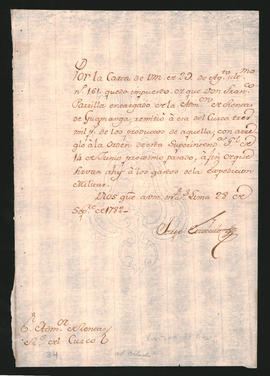 Por la Carta de Vm de 29. de Ag.to ultimo
n.º 161. quedo impuesto, de que Don Fran.co
Parilla encargado de la Adm.on de Rentas
de Guamanga, remitió à esa del Cuzco tres
mil p.s de los productos de aquella, con arre-
glo à la Orden de esta Superinten.a g.l de
14 de Junio proximo pasado, a fin de que
sirvan ahy à los gastos de la Expedicion
Militar.
Dios gue à vm m.s a.s Lima 28 de
Sep.re de 1782.
S.r Adm.or de Rentas
R.s del Cuzco
34